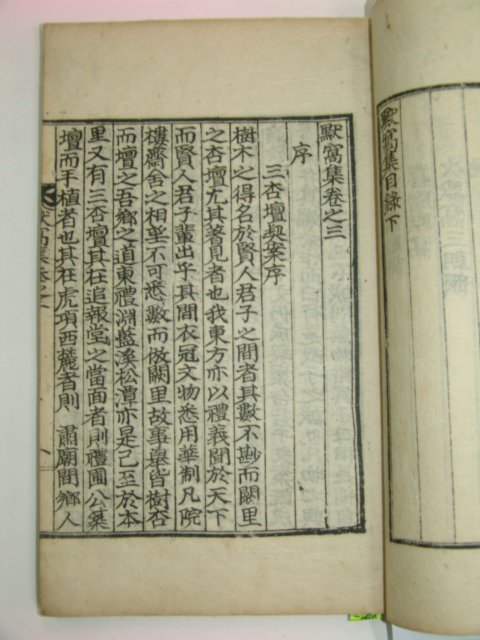 默窩集目錄下
默窩集卷之三
序
三杏壇契案序
樹木之得名於賢人君子之間者其數不尠而闕里
之杏壇尤其著見者也我東方亦以禮義聞於天下
而賢人君子輩出乎其間衣冠文物悉用華制凡院
樓齋舍之相望不可悉數而倣闕里故事舉皆樹杏
而壇之吾鄉之道東禮淵藍溪松潭亦是已至於本
里又有三杏壇其在追報堂之當面者則禮圃公築
壇而手植者也其在虎項西麓者則 肅廟間鄉人